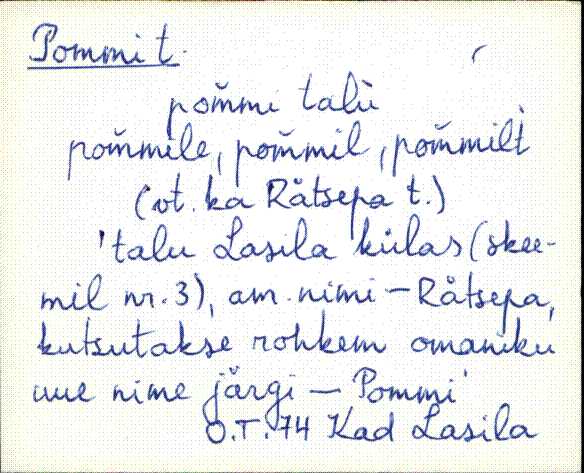 Pommi t.
pom̆mi talù
pom̆mile, pom̆mil, pom̆milt
(vt. ka Rätsepa t.)
'talu Lasila külas (skee-
mil nr. 3), am. nimi - Rätsepa,
kutsutakse rohkem omaniku
uue nime järgi - Pommi'
O.T. 74 Kad Lasila